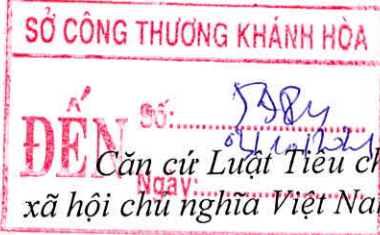 SỞ CÔNG THƯƠNG KHÁNH HÒA
ĐẾN Số:
Ngày:
Căn cứ Luật Tiêu ch
xã hội chủ nghĩa Việt Nam